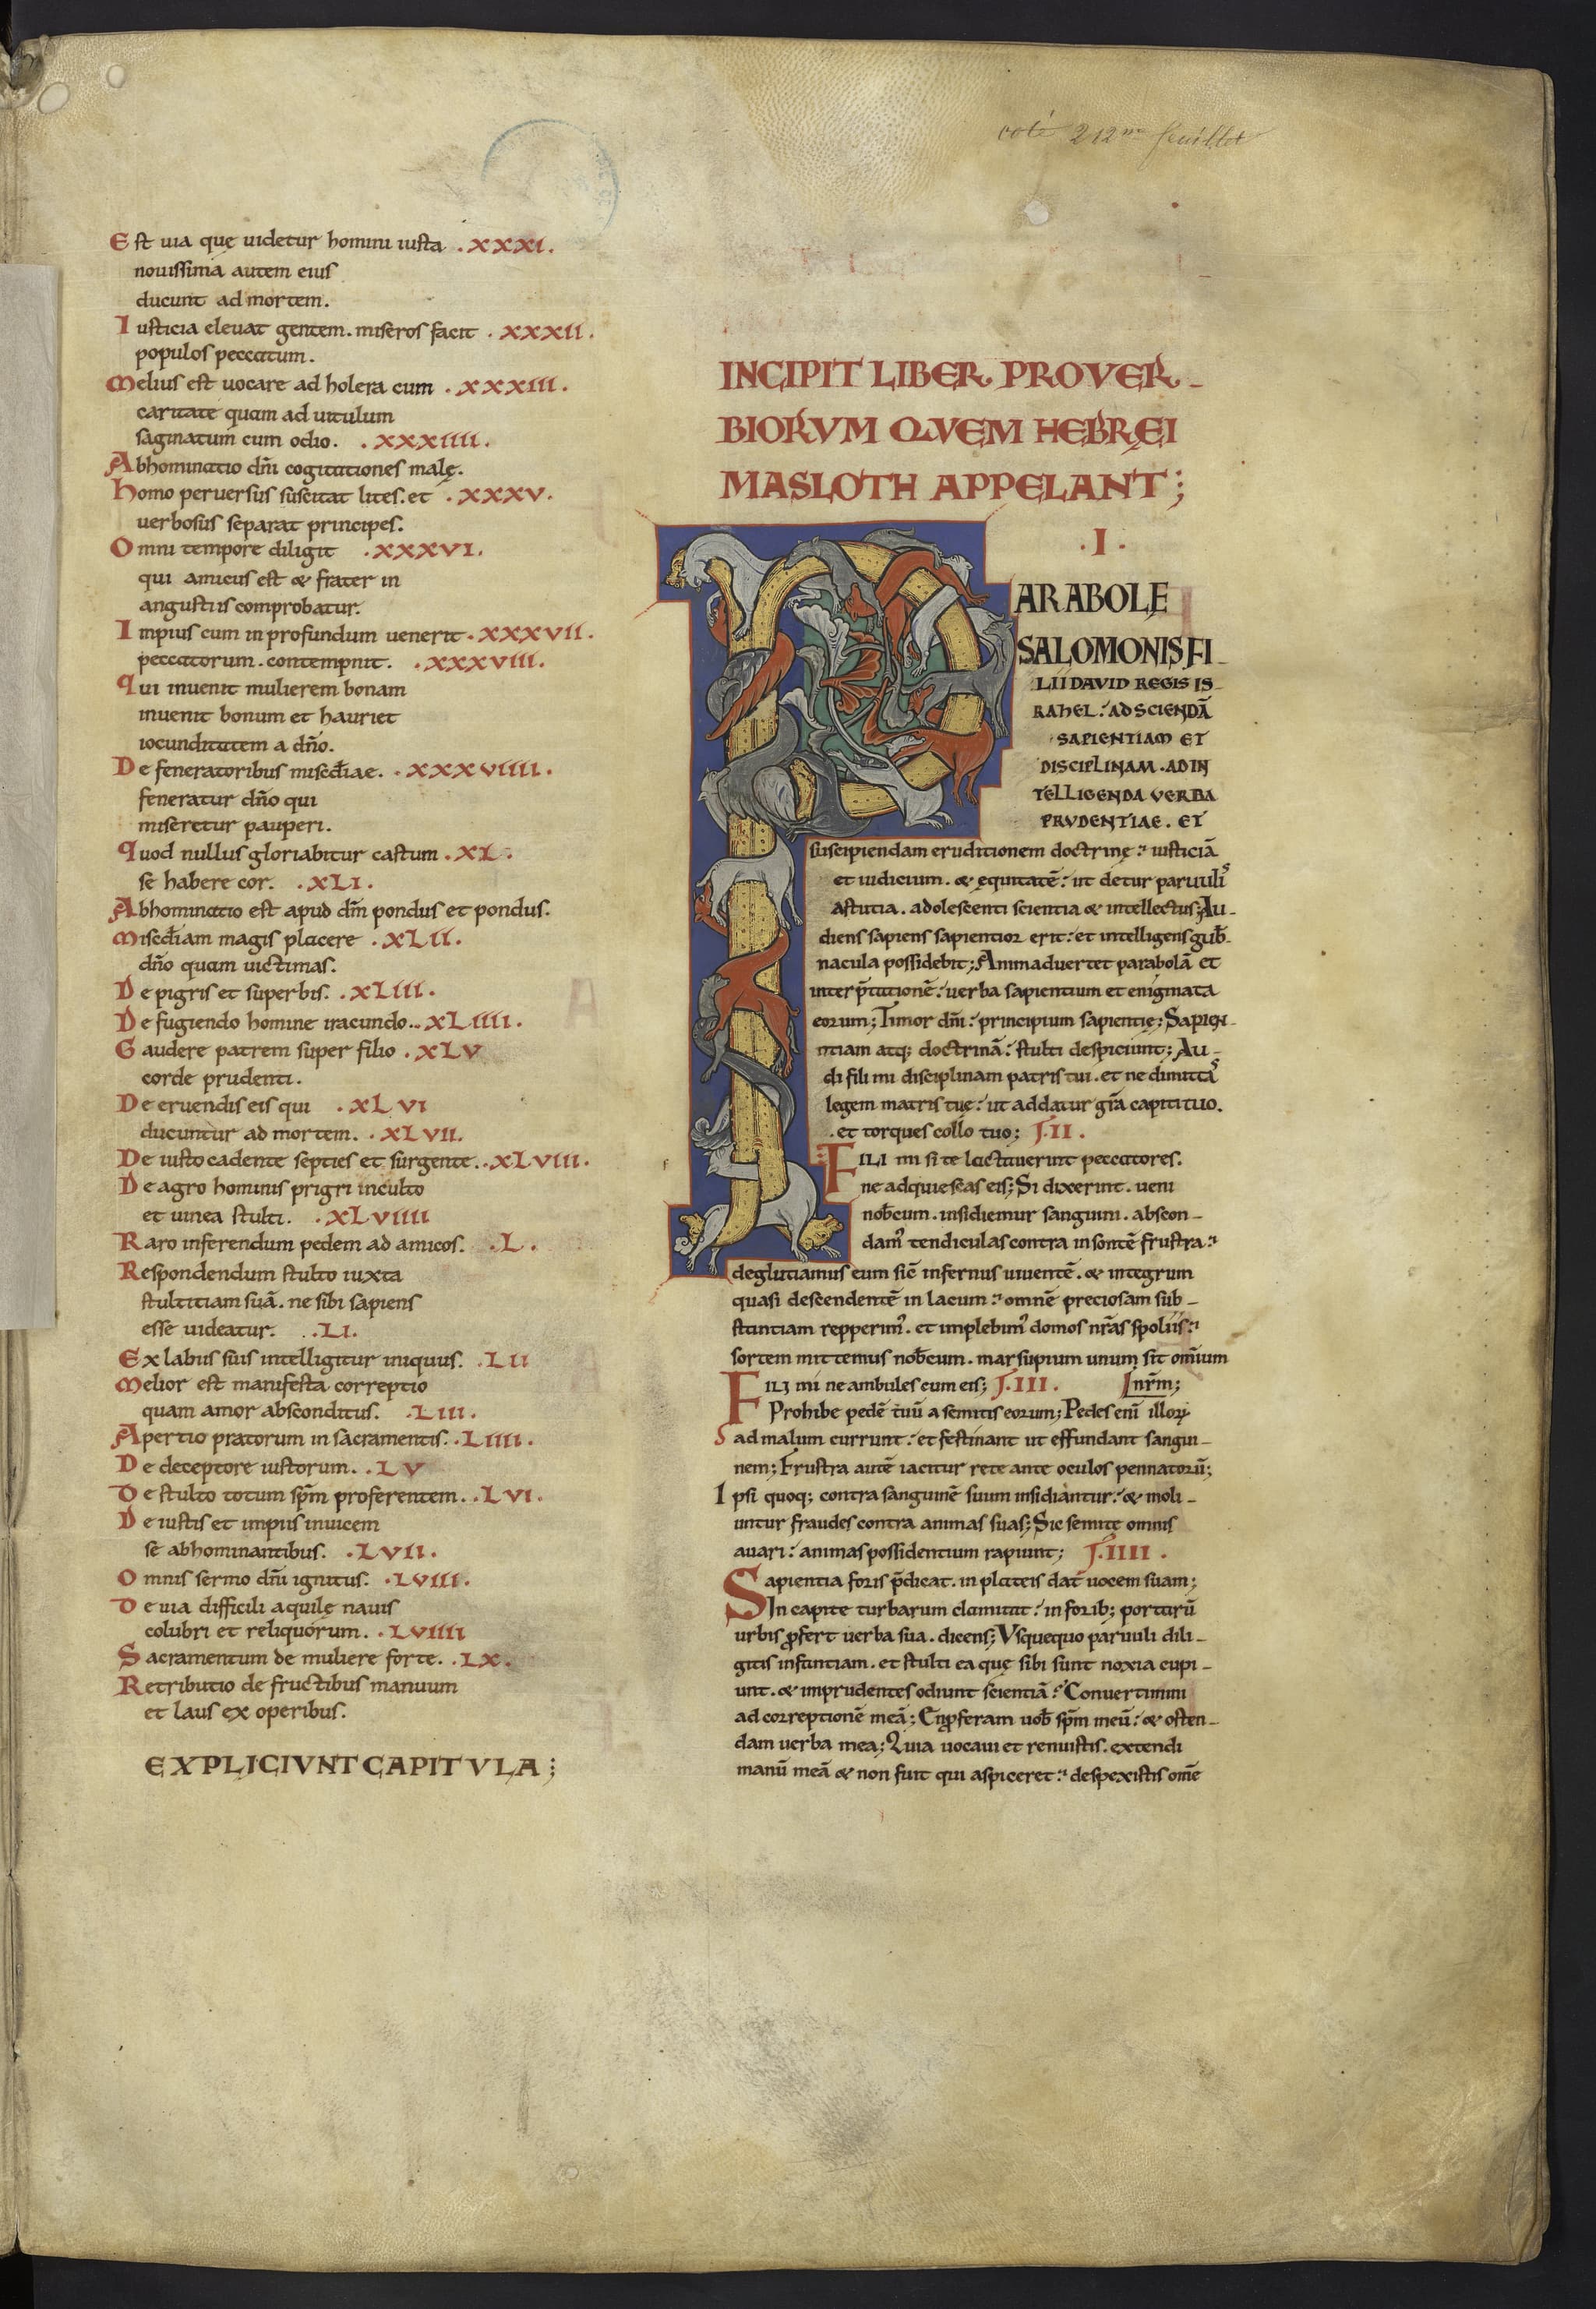 coté 212me feuillet
Est uia quę uidetur homini iusta .XXXI.
nouissima autem eius
ducunt ad mortem.
Iusticia eleuat gentem. miseros facit .XXXII.
populos peccatum.
Melius est uocare ad holera cum .XXXIII.
caritate quam ad uitulum
saginatum cum odio. .XXXIIII.
Abhominatio dn̄i cogitationes malę.
Homo peruersus suscitat lites. et .XXXV.
uerbosus separat principes.
Omni tempore diligit .XXXVI.
qui amicus est & frater in
angustiis comprobatur.
Impius cum in profundum uenerit .XXXVII.
peccatorum. contempnit. .XXXVIII.
qui inuenit mulierem bonam
inuenit bonum et hauriet
iocunditatem a dn̄o.
De feneratoribus misc̄diae. .XXXVIIII.
feneratur dn̄o qui
miseretur pauperi.
quod nullus gloriabitur castum .XL.
se habere cor. .XLI.
Abhominatio est apud dn̄m pondus et pondus.
Misc̄diam magis placere .XLII.
dn̄o quam uictimas.
De pigris et superbis. .XLIII.
De fugiendo homine iracundo. .XLIIII.
Gaudere patrem super filio .XLV
corde prudenti.
De eruendis eis qui .XLVI
ducuntur ad mortem. .XLVII.
De iusto cadente septies et surgente. .XLVIII.
De agro hominis prigri inculto
et uinea stulti. .XLVIIII
Raro inferendum pedem ad amicos. .L.
Respondendum stulto iuxta
stultitiam suā. ne sibi sapiens
esse uideatur. .LI.
Ex labiis suis intelligitur iniquus. .LII
Melior est manifesta correptio
quam amor absconditus. .LIII.
Apertio pratorum in sacramentis. .LIIII.
De deceptore iustorum. .LV
De stulto totum sp̄m proferentem. .LVI.
De iustis et impiis inuicem
se abhominantibus. .LVII.
Omnis sermo dn̄i ignitus. .LVIII.
De uia difficili aquilę nauis
colubri et reliquorum. .LVIIII
Sacramentum de muliere forte. .LX.
Retributio de fructibus manuum
et laus ex operibus.
EXPLICIVNT CAPITVLA;
INCIPIT LIBER PROVER-
BIORVM QVEM HEBRĘI
MASLOTH APPELANT;
.I.
PARABOLE
SALOMONIS FI-
LII DAVID REGIS IS-
RAHEL: AD SCIENDĀ
SAPIENTIAM ET
DISCIPLINAM. AD IN
TELLIGENDA VERBA
PRVDENTIAE. ET
suscipiendam eruditionem doctrinę: iusticiā
et iudicium. & ęquitatē: ut detur paruulis
astutia. adolescenti scientia & intellectus; Au-
diens sapiens sapientior erit: et intelligens gub̄-
nacula possidebit; Animaduertet parabolā et
interp̄tationē: uerba sapientium et enigmata
eorum; Timor dn̄i: principium sapientię; Sapien-
ntiam atq; doctrinā: stulti despiciunt; Au-
di fili mi disciplinam patris tui. et ne dimittas
legem matris tuę: ut addatur gr̄a capiti tuo.
et torques collo tuo; .II.
FILI mi si te lactauerint peccatores.
ne adquiescas eis; Si dixerint. ueni
nob̄cum. insidiemur sanguini. abscon-
dam᾽ tendiculas contra insontē frustra:
deglutiamus eum sic̄ infernus uiuentē. & integrum
quasi descendentē in lacum: omnē preciosam sub-
stantiam repperim᾽. et implebim᾽ domos nr̄as spoliis:
sortem mittemus nob̄cum. marsupium unum sit omīum
nr̄m;
FILI mi ne ambules cum eis; .III.
Prohibe pedē tuū a semitis eorum; Pedes enī illoꝝ
ad malum currunt: et festinant ut effundant sangui-
nem; Frustra autē iacitur rete ante oculos pennatorū;
Ipsi quoq; contra sanguinē suum insidiantur: & moli-
untur fraudes contra animas suas; Sic semitę omnis
auari: animas possidentium rapiunt; .IIII.
Sapientia foris p̄dicat. in plateis dat uocem suam;
In capite turbarum clamitat: in forib; portarū
urbis ꝓfert uerba sua. dicens; Vsquequo paruuli dili-
gitis infantiam. et stulti ea quę sibi sunt noxia cupi-
unt. & imprudentes odiunt scientiā: Conuertimini
ad correptionē meā; En ꝓferam uob̄ sp̄m meū: & osten-
dam uerba mea; Quia uocaui et renuistis. extendi
manū meā & non fuit qui aspiceret: despexistis omē